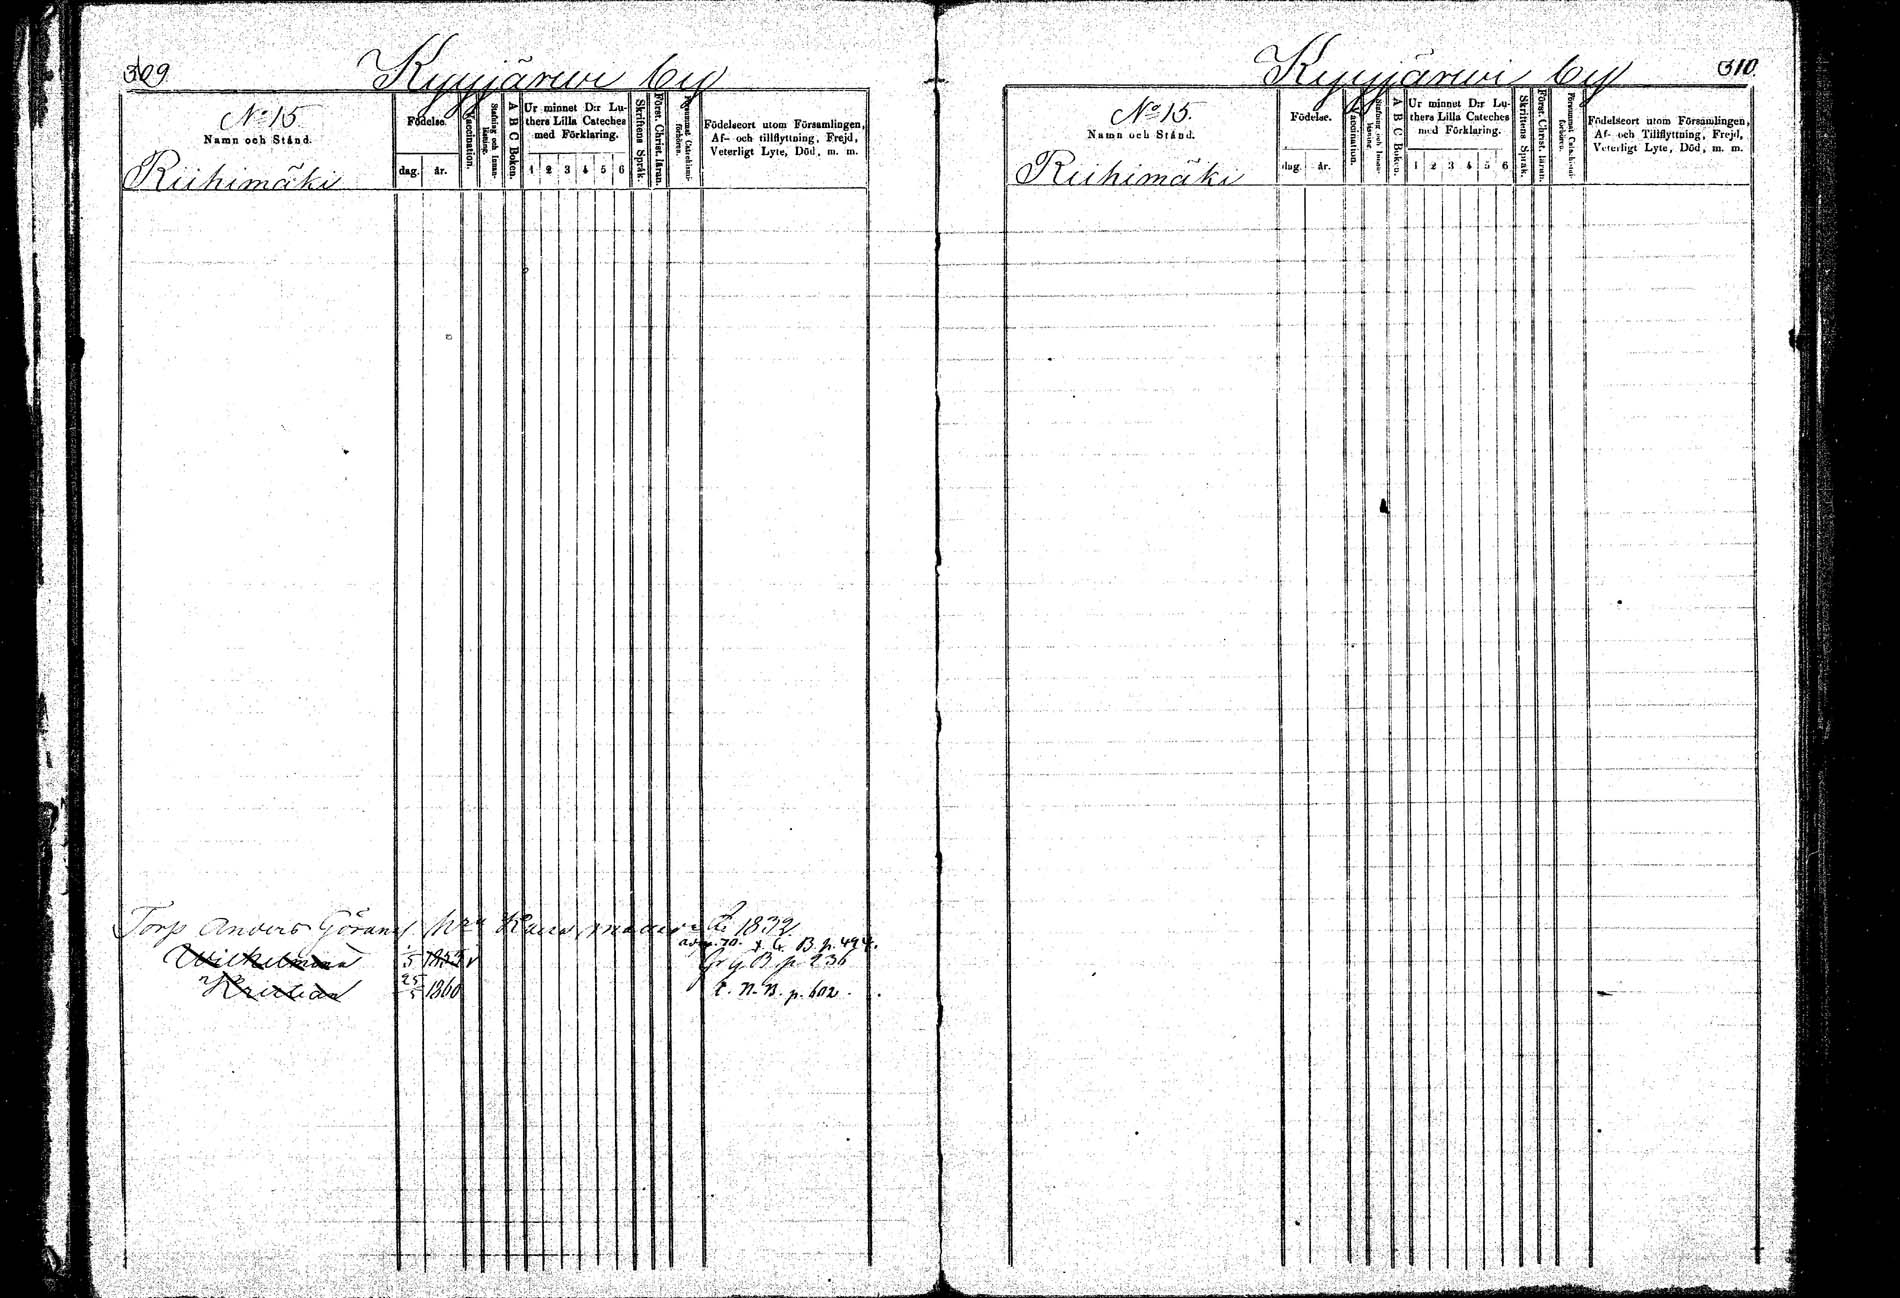 309
Kyyjärwi by
No 15
Namn och Stånd.
Riihimäki
Födelse.
dag. år.
Vaccination.
Stafning och Innan-läsning.
A B C Boken.
Ur minnet D:r Lu-
thers Lilla Cateches
med Förklaring.
1 2 3 4 5 6
Skriftens Språk.
Först. Christ. läran.
Försummat Catechismi-förhören.
Födelseort utom Församlingen,
Af- och tillflyttning, Frejd,
Veterligt Lyte, Död, m. m.
Torp Anders Görans 1832.
B. p. 494.
Wilhelmina 1/5 1855 v B p 236
Kristian 25/5 1860 p. 602.
310.
Kyyjärwi by
No 15.
Namn och Stånd.
Riihimäki
Födelse.
dag. år.
Vaccination.
Stafning och Innan-läsning
A B C Boken.
Ur minnet D:r Lu-
thers Lilla Cateches
med Förklaring.
1 2 3 4 5 6
Skriftens Språk.
Först. Christ. läran.
Försummat Catechismi-förhören.
Födelseort utom Församlingen,
Af- och Tillflyttning, Frejd,
Veterligt Lyte, Död, m. m.